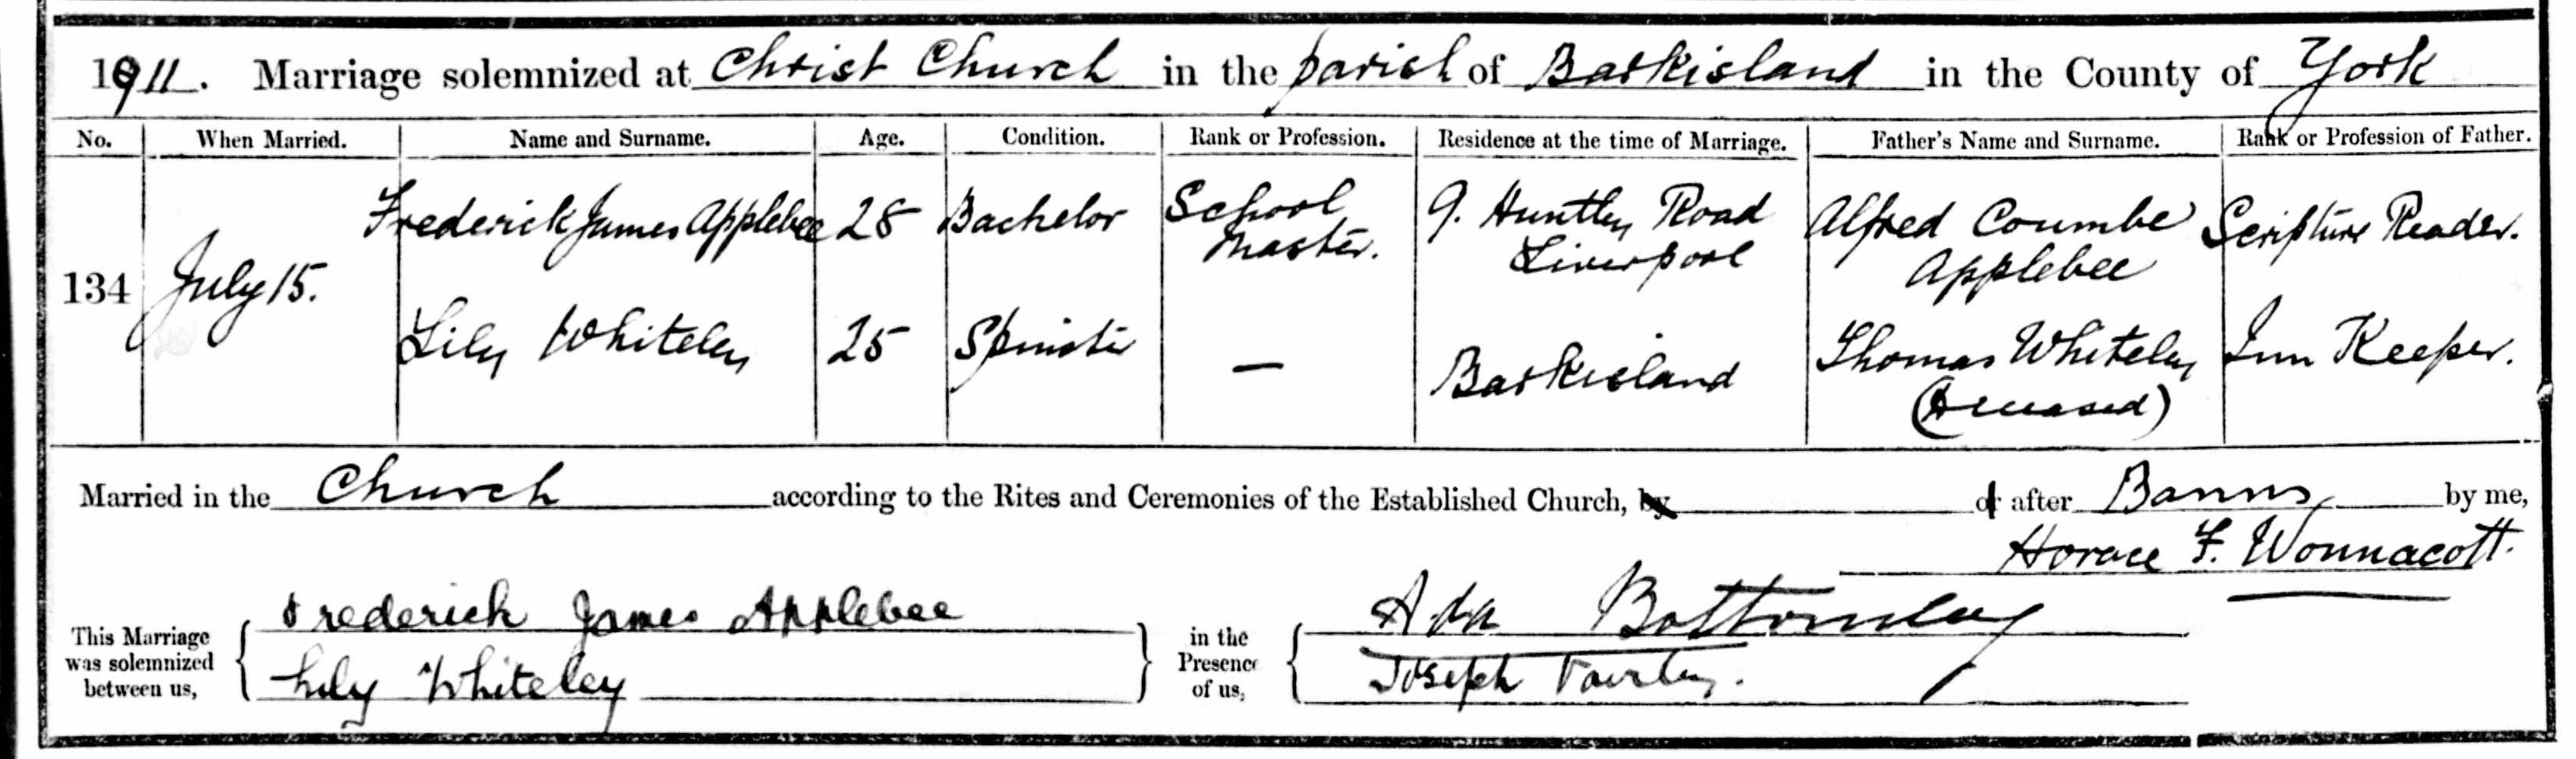 1911. Marriage solemnized at Christ Church in the parish of Barkisland in the County of York
No. When Married. Name and Surname. Age. Condition. Rank or Profession. Residence at the time of Marriage. Father's Name and Surname. Rank or Profession of Father.
134 July 15. Frederick James Applebee 28 Bachelor School Master. 9. Huntley Road Liverpool Alfred Coumbe Applebee Scripture Reader.
Lily Whiteley 25 Spinster — Barkisland Thomas Whiteley (deceased) Inn Keeper.
Married in the Church according to the Rites and Ceremonies of the Established Church, by or after Banns by me,
Horace F. Wonnacott.
This Marriage was solemnized between us,
Frederick James Applebee
Lily Whiteley
in the Presence of us,
Ada Bottomley
Joseph